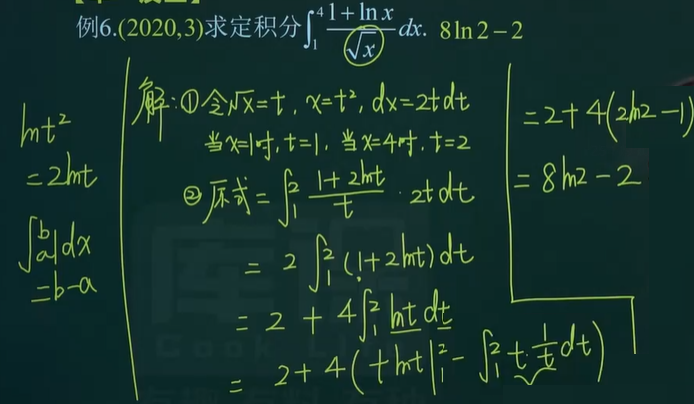 例6.(2020,3)求定积分∫₁⁴ (1+ln x)/√x dx. 8ln2−2
lnt²
=2lnt
∫ₐᵇ1dx
=b-a
解:①令√x=t, x=t², dx=2tdt
当x=1时,t=1, 当x=4时,t=2
②原式=∫₁² (1+2lnt)/t · 2tdt
= 2∫₁²(1+2lnt)dt
= 2 + 4∫₁² lnt dt
= 2+4(tlnt|₁² - ∫₁² t·(1/t)dt)
=2+4(2ln2-1)
=8ln2-2